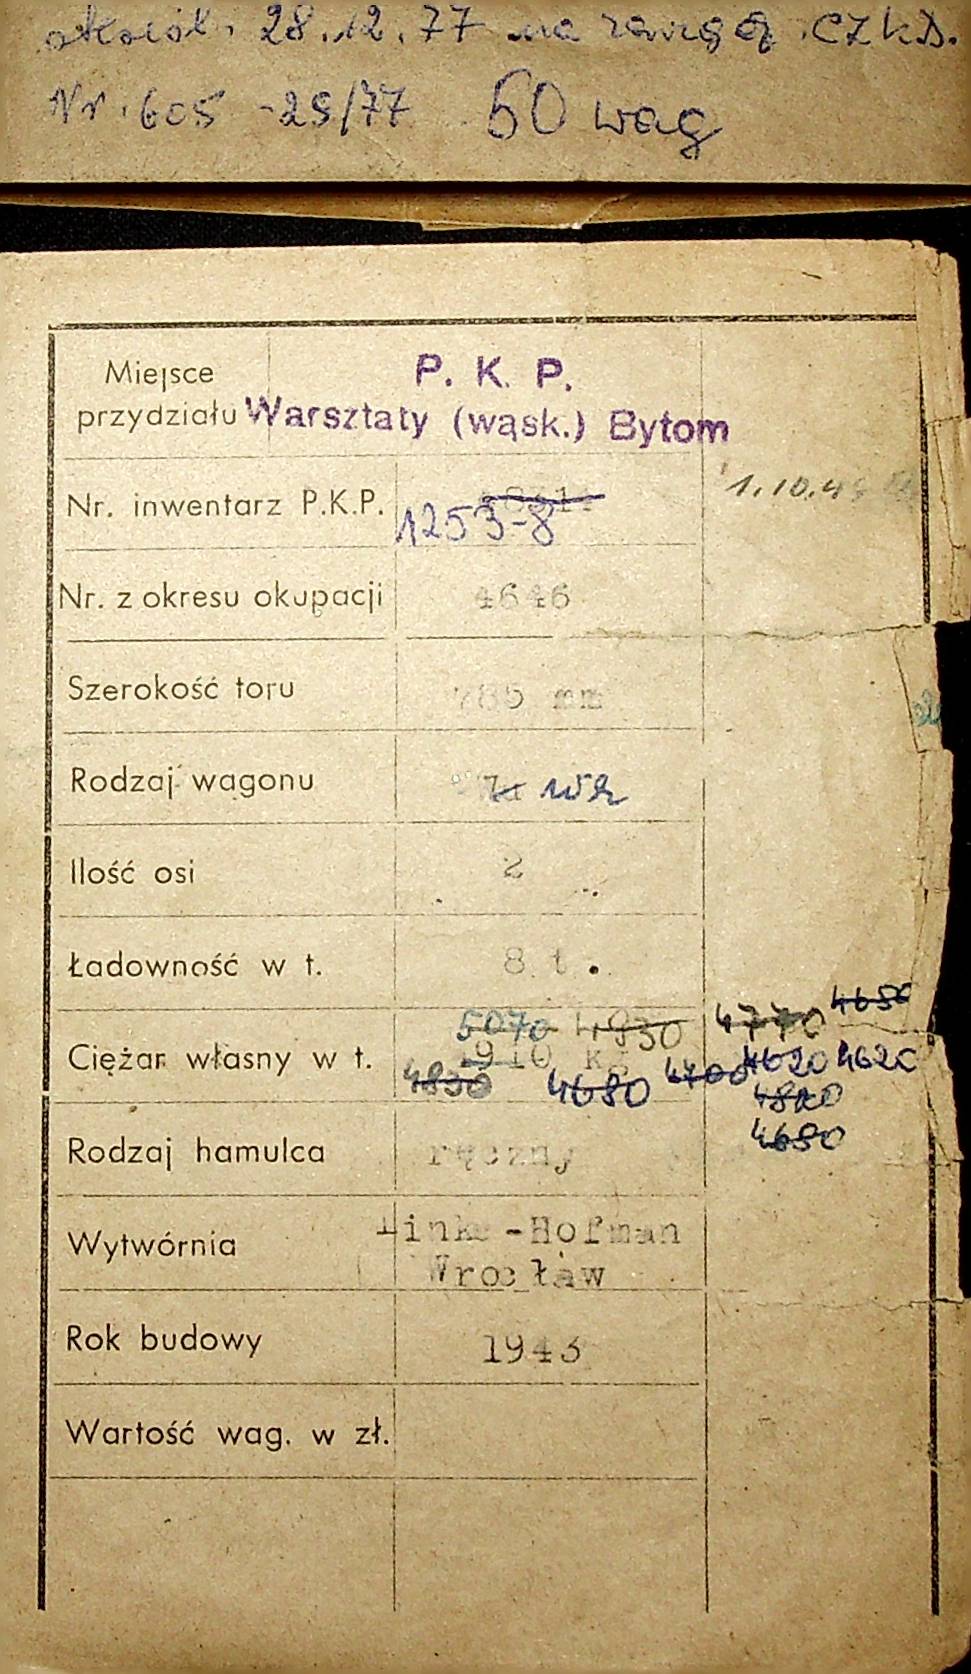 28.12.77 na
Nr. 605 -29/77 50 wag
Miejsce przydziału
P. K. P.
Warsztaty (wąsk.) Bytom
Nr. inwentarz P.K.P.
1253-8
1.10.4
Nr. z okresu okupacji 4646
Szerokość toru 785 mm
Rodzaj wagonu
Ilość osi 2
Ładowność w t. 8 t.
4650
5070 4930 4770
Ciężar własny w t. 4910 kg 4620 4620
4830 4680 4700 4820
4680
Rodzaj hamulca ręczny
Wytwórnia Linke-Hofman
Wrocław
Rok budowy 1943
Wartość wag. w zł.